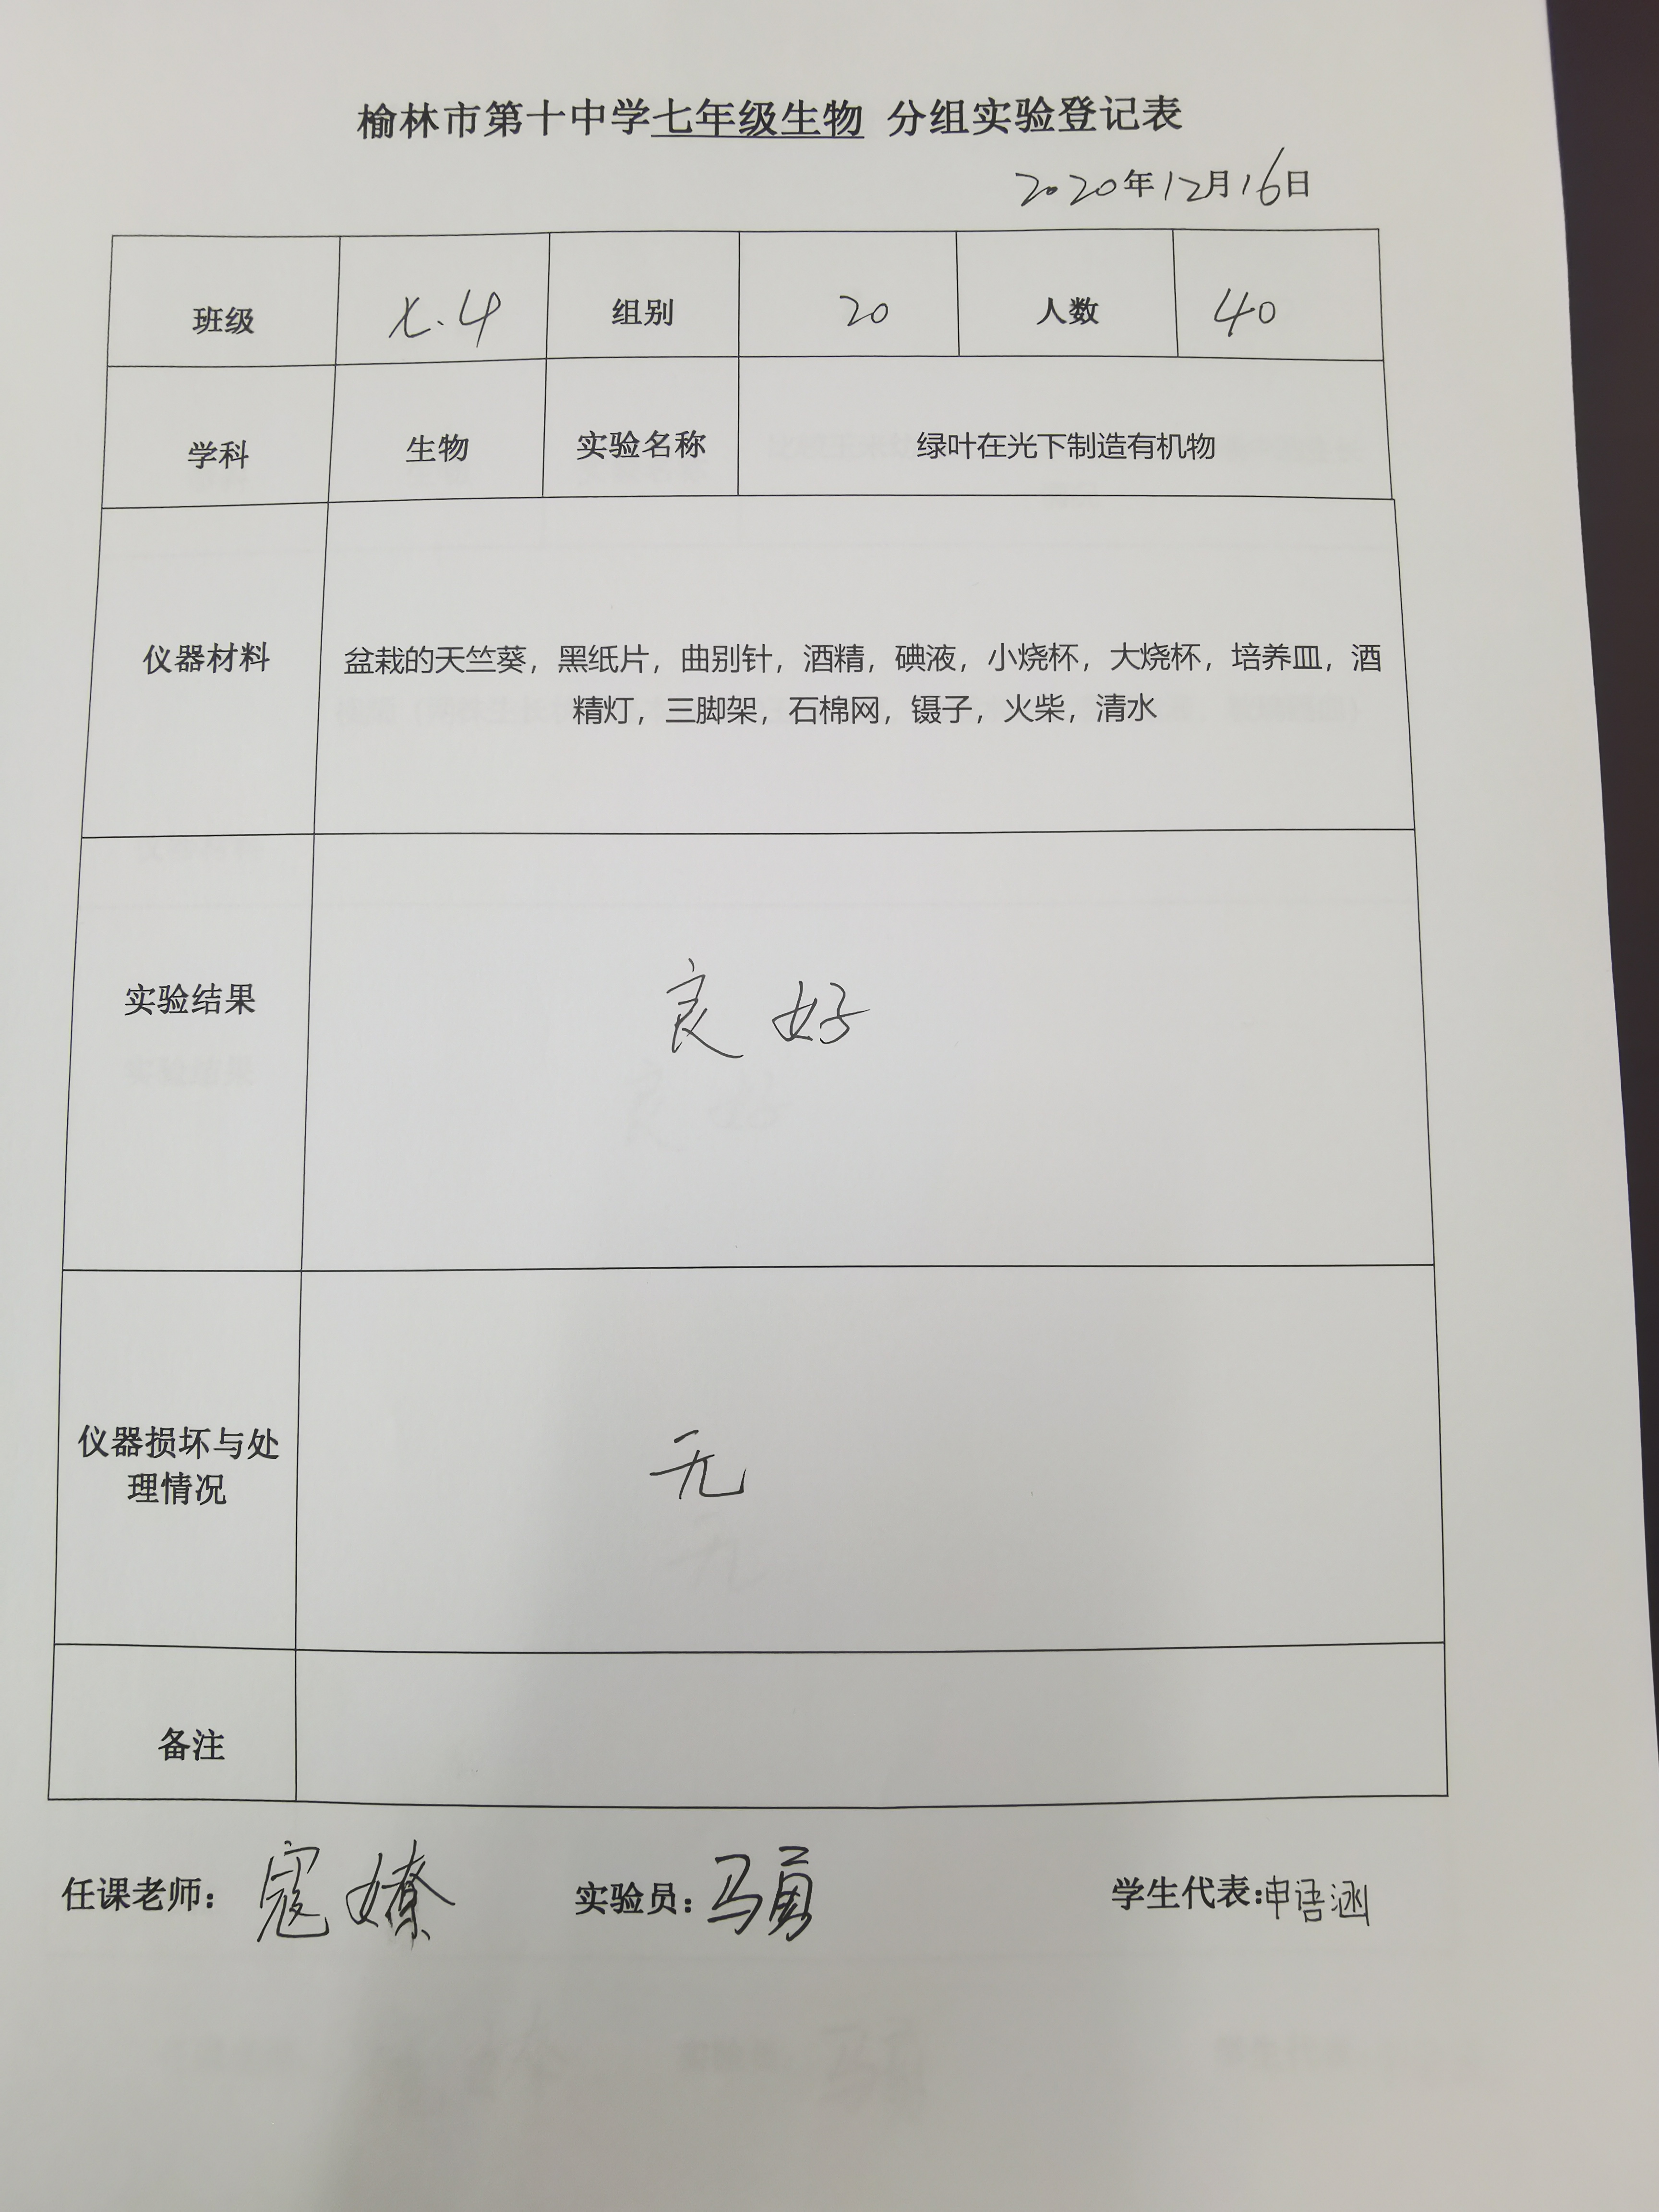 榆林市第十中学七年级生物 分组实验登记表
2020年12月16日
班级 七.4 组别 20 人数 40
学科 生物 实验名称 绿叶在光下制造有机物
仪器材料
盆栽的天竺葵，黑纸片，曲别针，酒精，碘液，小烧杯，大烧杯，培养皿，酒
精灯，三脚架，石棉网，镊子，火柴，清水
实验结果 良好
仪器损坏与处
理情况
无
备注
任课老师：寇嫽 实验员：马勇 学生代表：申语涵